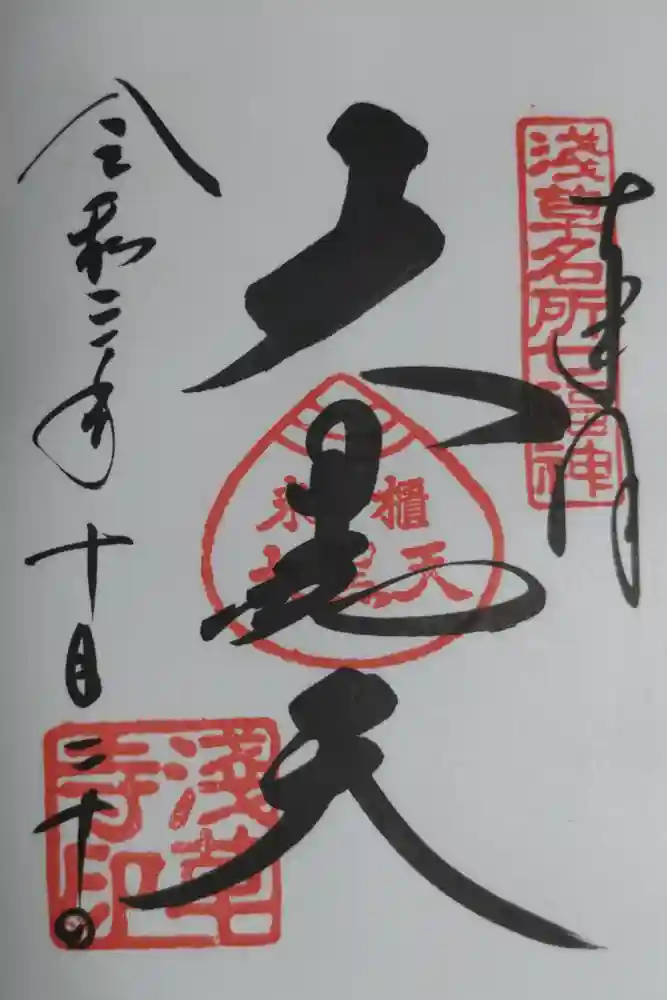 奉拝
淺草名所七福神
大黒天
米櫃
大黒天
令和二年十月二十日
淺草寺印